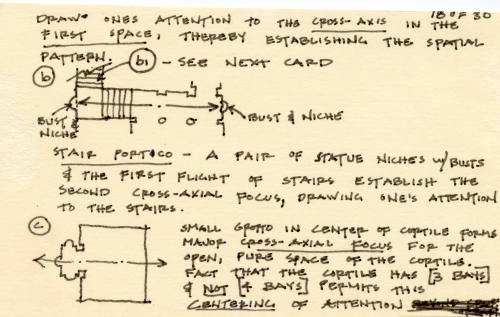 18 OF 30
DRAW ONES ATTENTION TO THE CROSS-AXIS IN THE
FIRST SPACE, THEREBY ESTABLISHING THE SPATIAL
PATTERN.
b1 - SEE NEXT CARD
b
BUST & NICHE
BUST & NICHE
STAIR PORTICO - A PAIR OF STATUE NICHES W/BUSTS
& THE FIRST FLIGHT OF STAIRS ESTABLISH THE
SECOND CROSS-AXIAL FOCUS, DRAWING ONE'S ATTENTION
TO THE STAIRS.
C
SMALL GROTTO IN CENTER OF CORTILE FORMS
MAJOR CROSS-AXIAL FOCUS FOR THE
OPEN, PURE SPACE OF THE CORTILE.
FACT THAT THE CORTILE HAS [3 BAYS]
& NOT [4 BAYS] PERMITS THIS
CENTERING OF ATTENTION